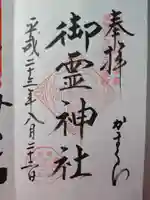 奉拝
かまくら
御霊神社
平成二十三年八月二十一日